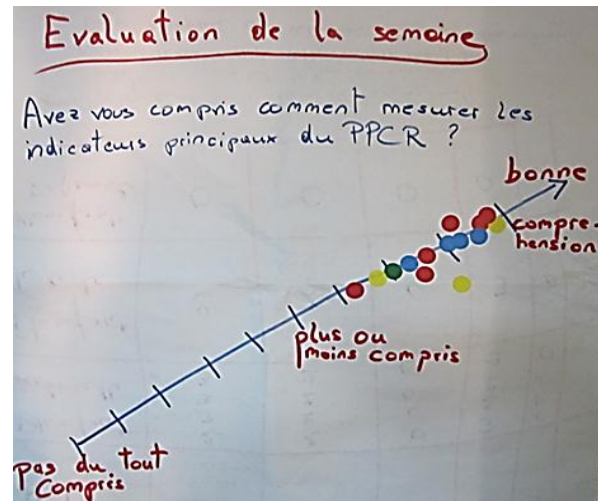 Evaluation de la semaine
Avez vous compris comment mesurer les
indicateurs principaux du PPCR ?
bonne
compre-
hension
plus ou
moins compris
pas du tout
compris